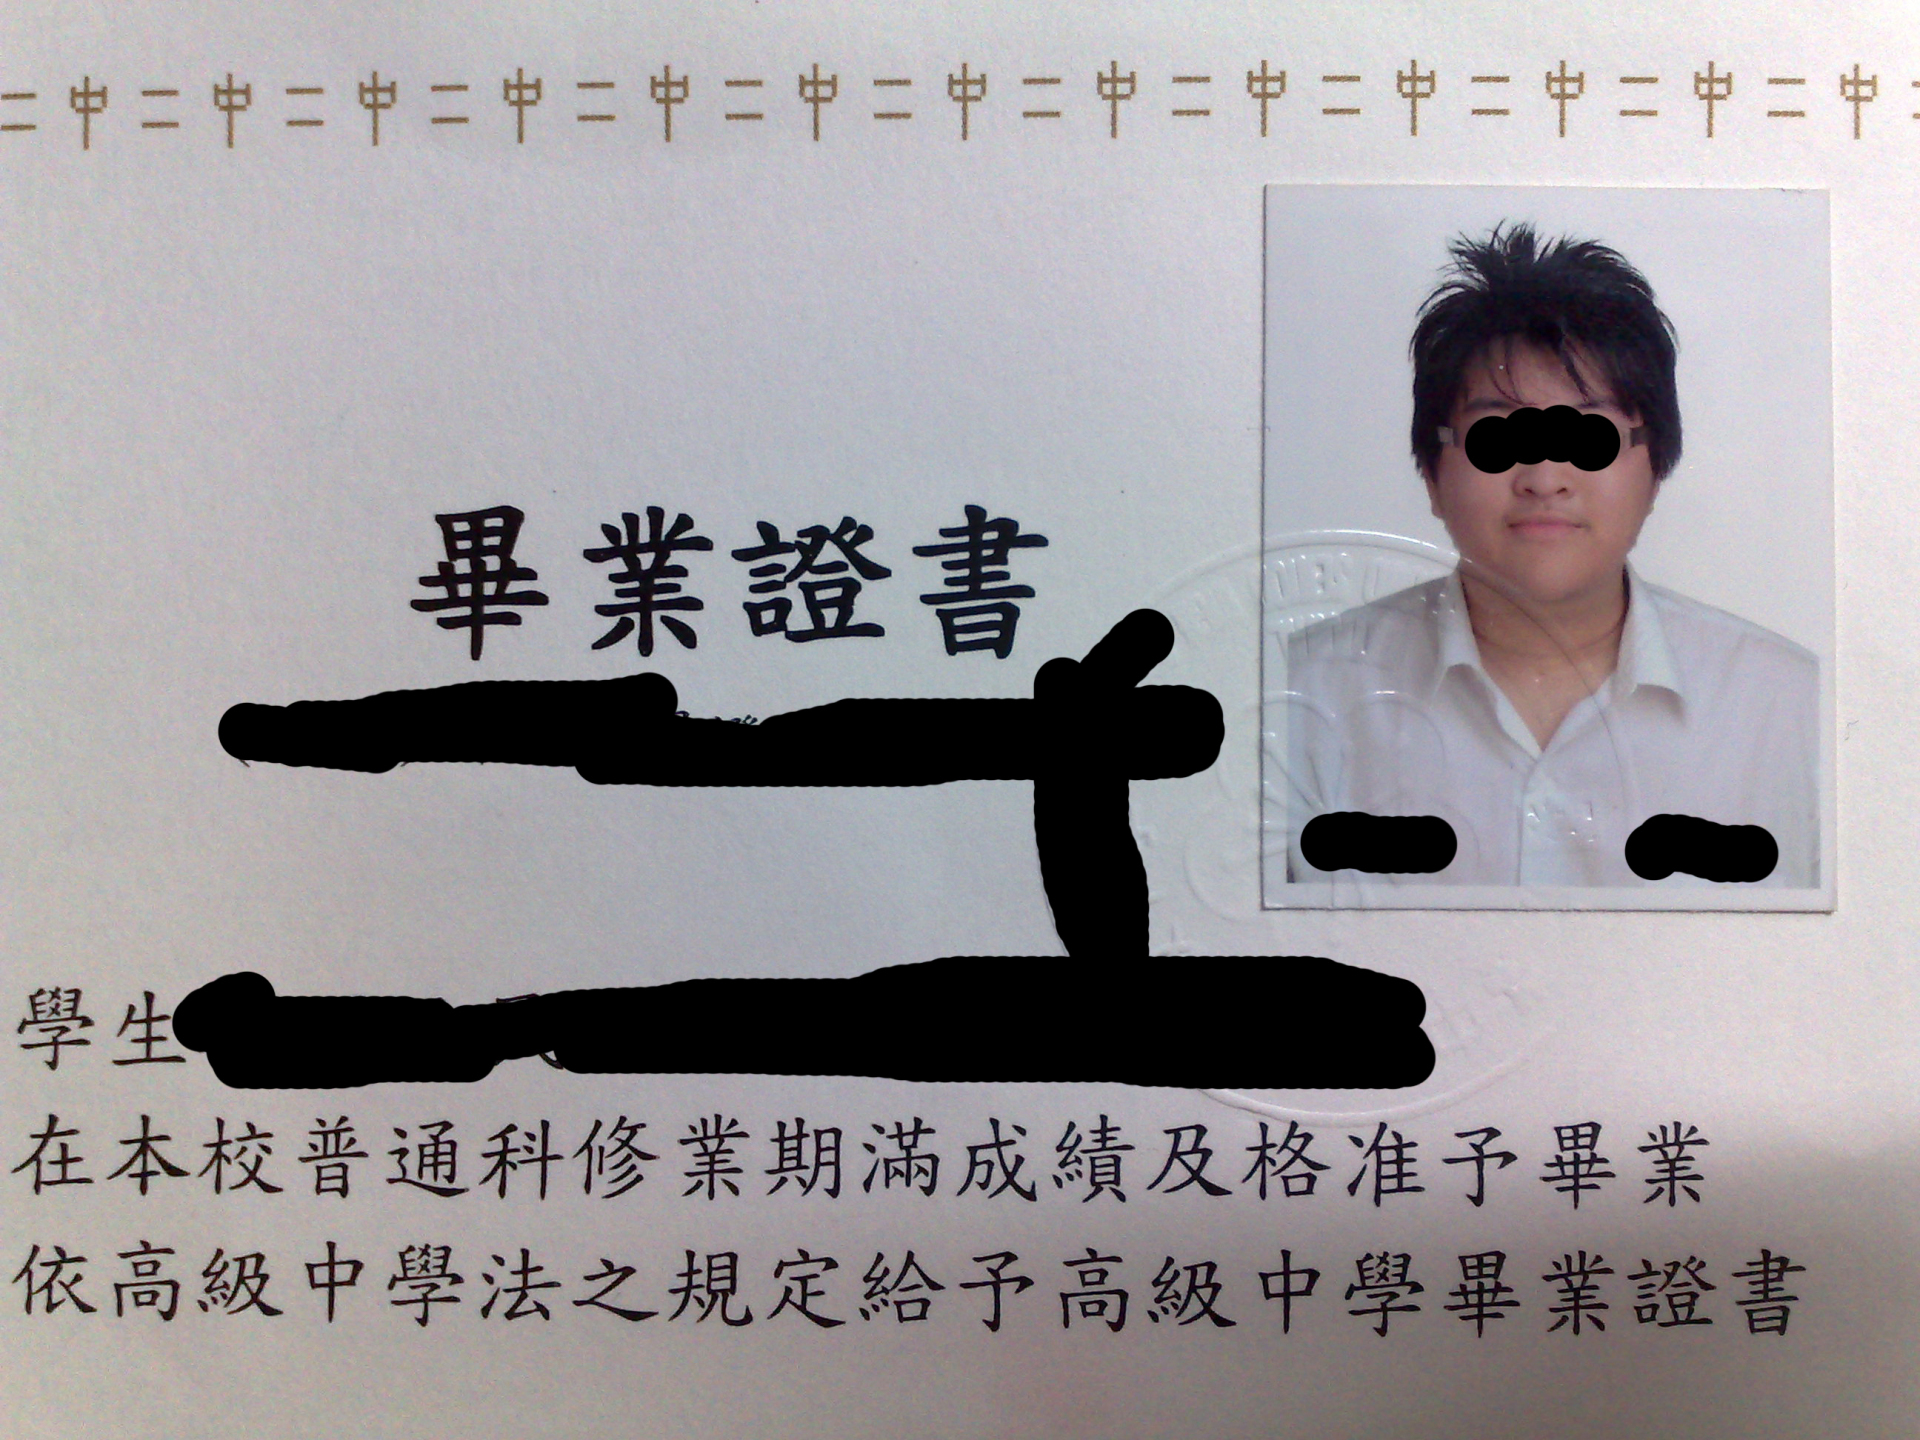 二中二中二中二中二中二中二中二中二中二中二中二中二中
畢業證書
學生
在本校普通科修業期滿成績及格准予畢業
依高級中學法之規定給予高級中學畢業證書